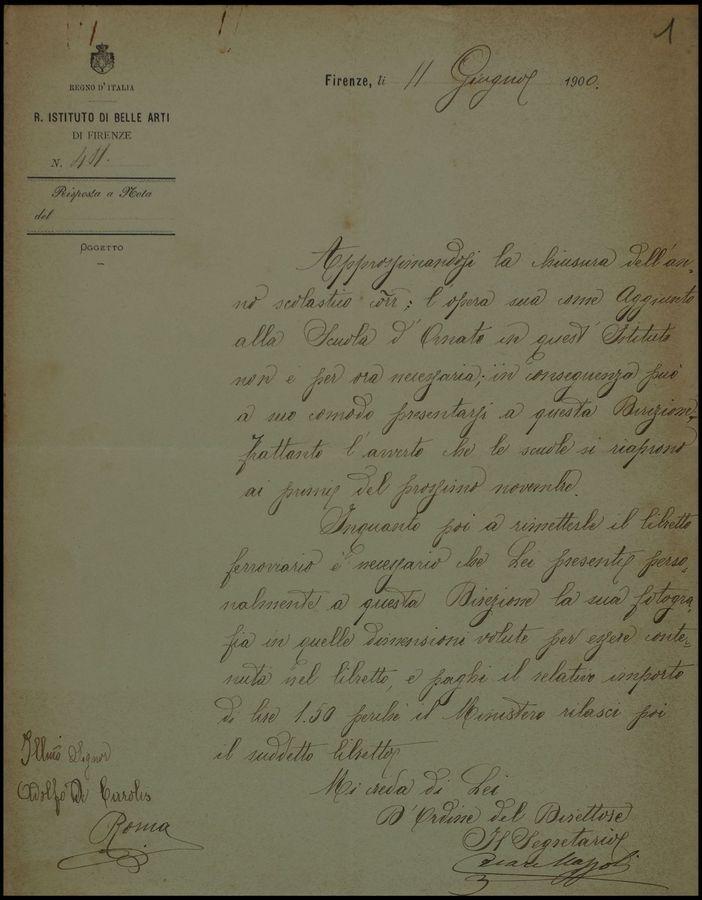 1
REGNO D'ITALIA
R. ISTITUTO DI BELLE ARTI
DI FIRENZE
N. 411.
Risposta a Nota
del
OGGETTO
Firenze, li 11 Giugno 1900.
Approssimandosi la chiusura dell'an-
no scolastico corr; l'opera sua come Aggiunto
alla Scuola d'Ornato in quest'Istituto
non è per ora necessaria; in conseguenza può
a suo comodo presentarsi a questa Direzione,
frattanto l'avverto che le scuole si riaprono
ai primi del prossimo novembre.
Inquanto poi a rimetterle il libretto
ferroviario è necessario che Lei presenti perso-
nalmente a questa Direzione la sua fotogra-
fia in quelle dimensioni volute per essere conte-
nuta nel libretto, e paghi il relativo importo
di lire 1.50 perchè il Ministero rilasci poi
il suddetto libretto
Mi creda di Lei
D'Ordine del Direttore
Il Segretario
Illmo Signor
Adolfo De Carolis
Roma